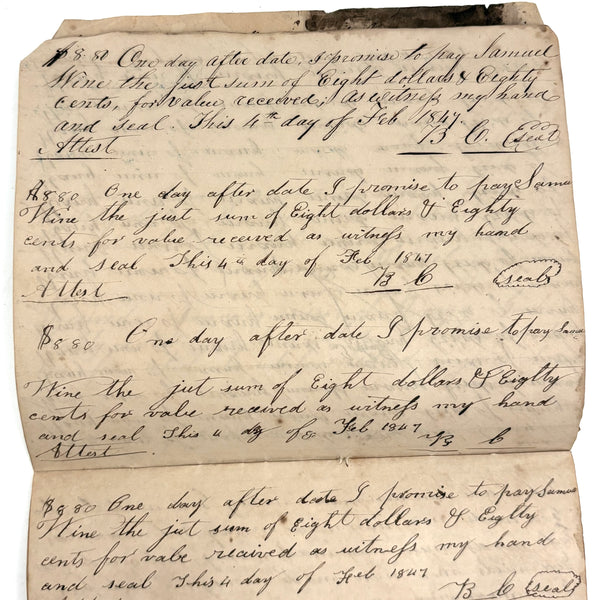 $8.80 One day after date, I promise to pay Samuel
Wine the just sum of Eight dollars & Eighty
cents, for value received; as witness my hand
and seal. This 4th day of Feb 1847.
Attest B C. Seal
$8.80 One day after date I promise to pay Samu
Wine the just sum of Eight dollars & Eighty
cents for value received as witness my hand
and seal This 4th day of Feb 1847
Attest B C seal
$8.80 One day after date I promise to pay Samu
Wine the jut sum of Eight dollars & Eighty
cents for valbe received as witness my hand
and seal This 4 dy of Feb 1847
Attest B C
$8.80 One day after date I promise to pay Samu
Wine the jut sum of Eight dollars & Eighty
cents for valbe recaived as witness my hand
and seal This 4 day of Feb 1847
B C seal